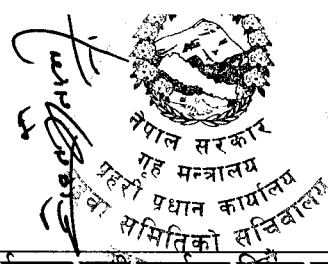 नेपाल सरकार
गृह मन्त्रालय
प्रहरी प्रधान कार्यालय
सेवा समितिको सचिवालय